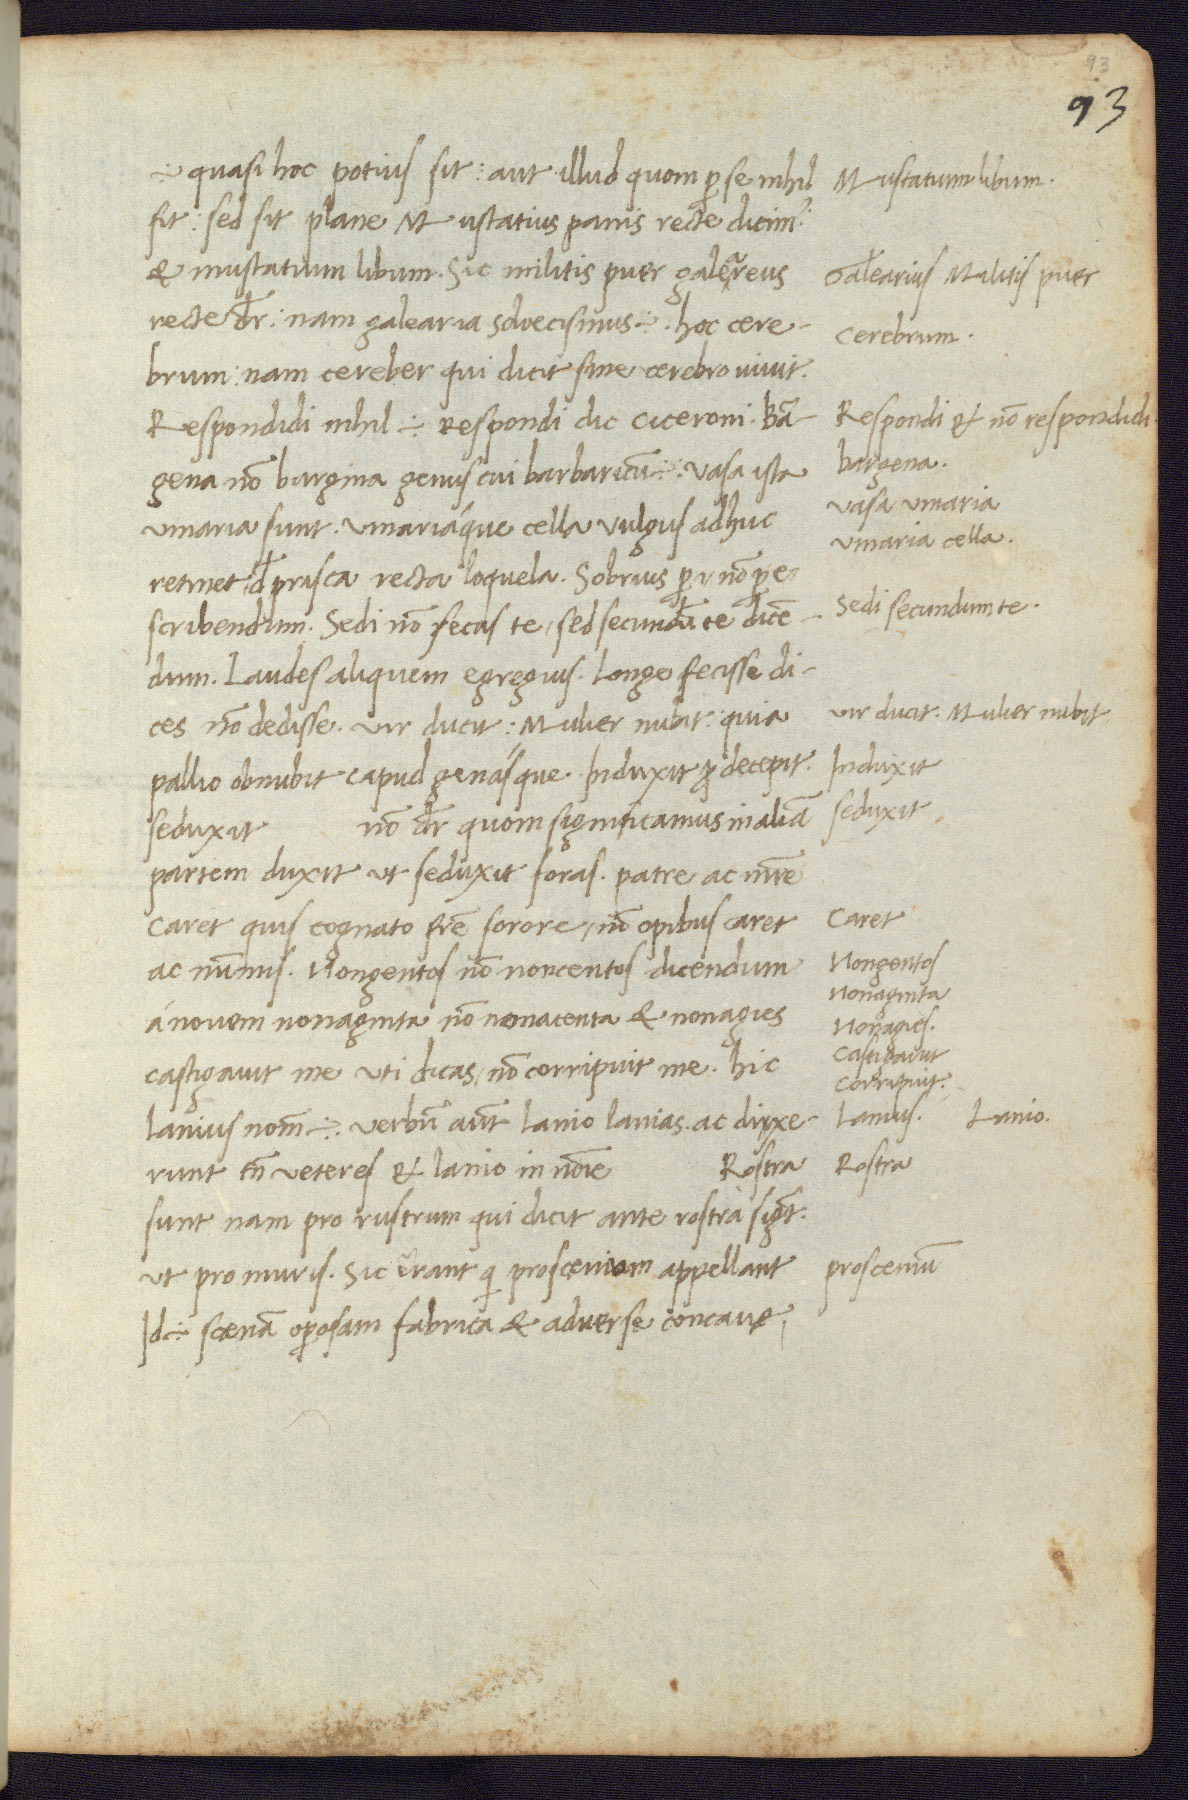 93
93
÷ quasi hoc potius sit: aut illud quom ꝑ se nihil
fit: sed sit plane Mustatius panis recte dicim᷒:
& mustatium libum. Sic militis puer galereus
recte dr̄: nam galearia ÷. hoc cere-
brum: nam cereber qui dicit sine cerebro uiuit.
Respondidi nihil ÷ respondi dic ciceroni. Bā-
gena nō bargina genus cui barbaricū ÷: vasa ista
vinaria sunt. vinariáque cella vulgus adhuc
retinet prisca recta loquela. Sobrius ꝑ i nō ꝑ e
scribendum. Sedi nō secus te, sed secundū te dicē-
dum. Laudes aliquem egregius. longe fecisse di-
ces nō dedisse. vir ducit: Mulier nubit: quia
pallio obnubit capud genásque. Induxit ꝓ decepit.
seduxit nō dr̄ quom significamus in aliā
partem duxit ut seduxit foras. patre ac mr̄e
caret quis cognato fr̄e sorore, nō opibus caret
ac nummis. Nongentos nō noncentos dicendum
á novem nonaginta nō nonacenta & nonagies
castigauit me uti dicas, nō corripuit me. hic
lanius nom̄ ÷. verbū aut̄ lanio lanias. ac dixe-
runt tn̄ veteres & lanio in noīe Rostra
sunt nam pro rustrum qui dicit ante rostra sig̅t.
ut pro muris. Sic errant q proscenium appellant
Id ÷ scenā oꝑosam fabrica & aduerse concaue.
Mustatium libum.
Galearius Militis puer
Cerebrum.
Respondi & nō respondidi.
bargena.
vasa vinaria
vinaria cella.
Sedi secundum te.
vir ducit. Mulier nubit
Induxit
seduxit
Caret
Nongentos
Nonaginta
Nonagies.
Castigauit
Corripuit.
Lanius. Lanio.
Rostra
prosceniū